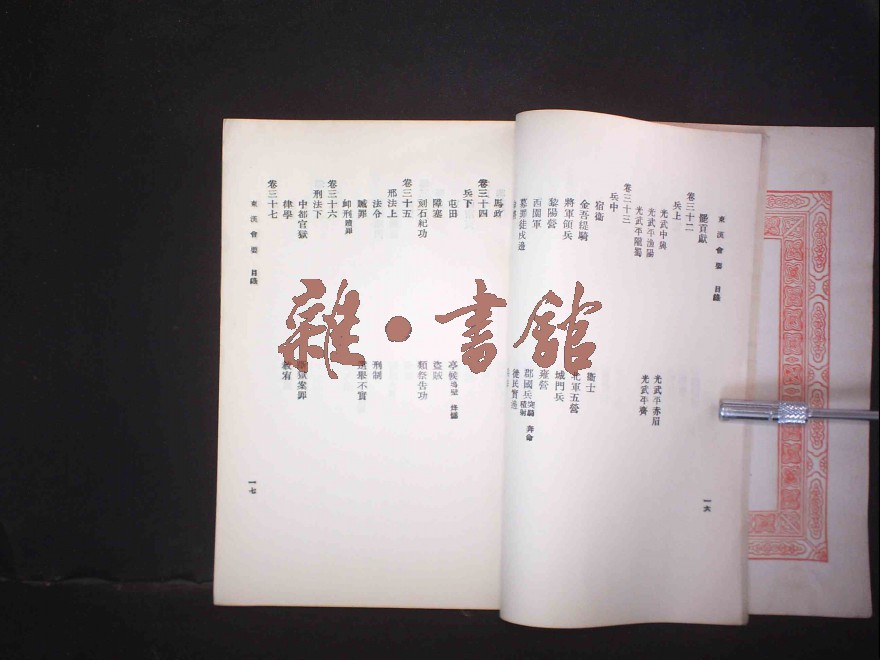 東漢會要 目錄
罷貢獻
卷三十二
兵上
光武中興
光武平赤眉
光武平漁陽
光武平齊
光武平隴蜀
卷三十三
兵中
宿衛
衞士
金吾緹騎
北軍五營
將軍領兵
城門兵
黎陽營
雍營
西園軍
郡國兵 突騎 積射 奔命
募罪徒戍邊
徙民實邊
一六
馬政
卷三十四
兵下
屯田
亭候 塢壁 烽燧
障塞
盜賊
刻石紀功
類祭告功
卷三十五
刑法上
法令
刑制
贓罪
選舉不實
卹刑 贖罪
卷三十六
刑法下
中都官獄
獄案罪
律學
赦宥
卷三十七
東漢會要 目錄
一七
雜·書館